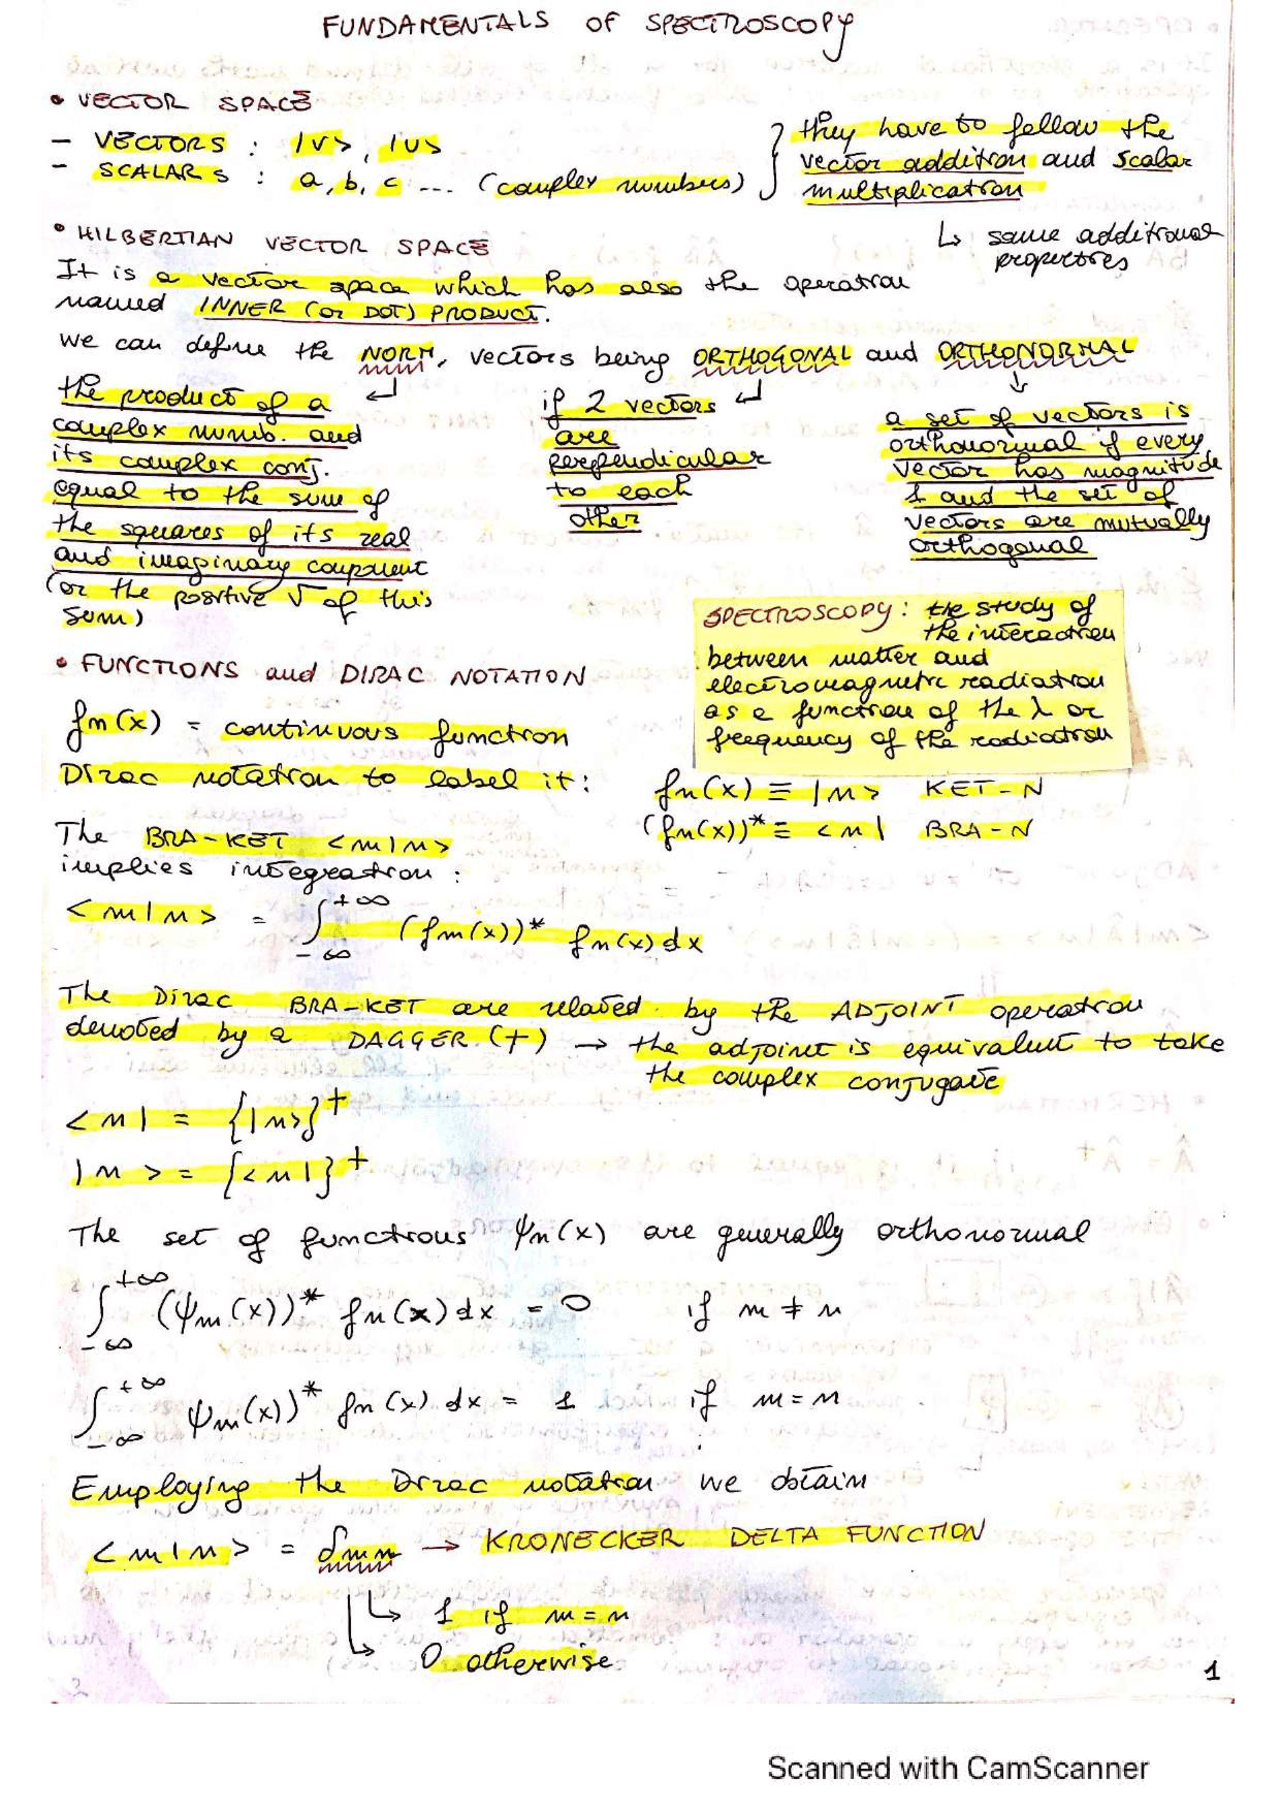 FUNDAMENTALS OF SPECTROSCOPY
• VECTOR SPACE
- VECTORS : |v>, |u>
- SCALARS : a, b, c ... (complex numbers)
they have to follow the
vector addition and scalar
multiplication
↳ same additional
properties
• HILBERTIAN VECTOR SPACE
It is a vector space which has also the operation
named INNER (or DOT) PRODUCT.
we can define the NORM, vectors being ORTHOGONAL and ORTHONORMAL
the product of a
complex numb. and
its complex conj.
equal to the sum of
the squares of its real
and imaginary component
(or the positive √ of this
sum)
if 2 vectors
are
perpendicular
to each
other
a set of vectors is
orthonormal if every
vector has magnitude
1 and the set of
vectors are mutually
orthogonal
SPECTROSCOPY: the study of
the interaction
between matter and
electromagnetic radiation
as a function of the λ or
frequency of the radiation
• FUNCTIONS and DIRAC NOTATION
fn(x) = continuous function
Dirac notation to label it:
fn(x) ≡ |n> KET-N
(fn(x))* ≡ <n| BRA-N
The BRA-KET <m|n>
implies integration:
<m|n> = ∫_{-∞}^{+∞} (fm(x))* fn(x) dx
The Dirac BRA-KET are related by the ADJOINT operation
denoted by a DAGGER (†) → the adjoint is equivalent to take
the complex conjugate
<n| = {|n>}†
|n> = {<n|}†
The set of functions ψn(x) are generally orthonormal
∫_{-∞}^{+∞} (ψm(x))* fn(x) dx = 0 if m ≠ n
∫_{-∞}^{+∞} ψm(x))* fn(x) dx = 1 if m = n
Employing the Dirac notation we obtain
<m|n> = δmn → KRONECKER DELTA FUNCTION
↳ 1 if m = n
↳ 0 otherwise
1
Scanned with CamScanner